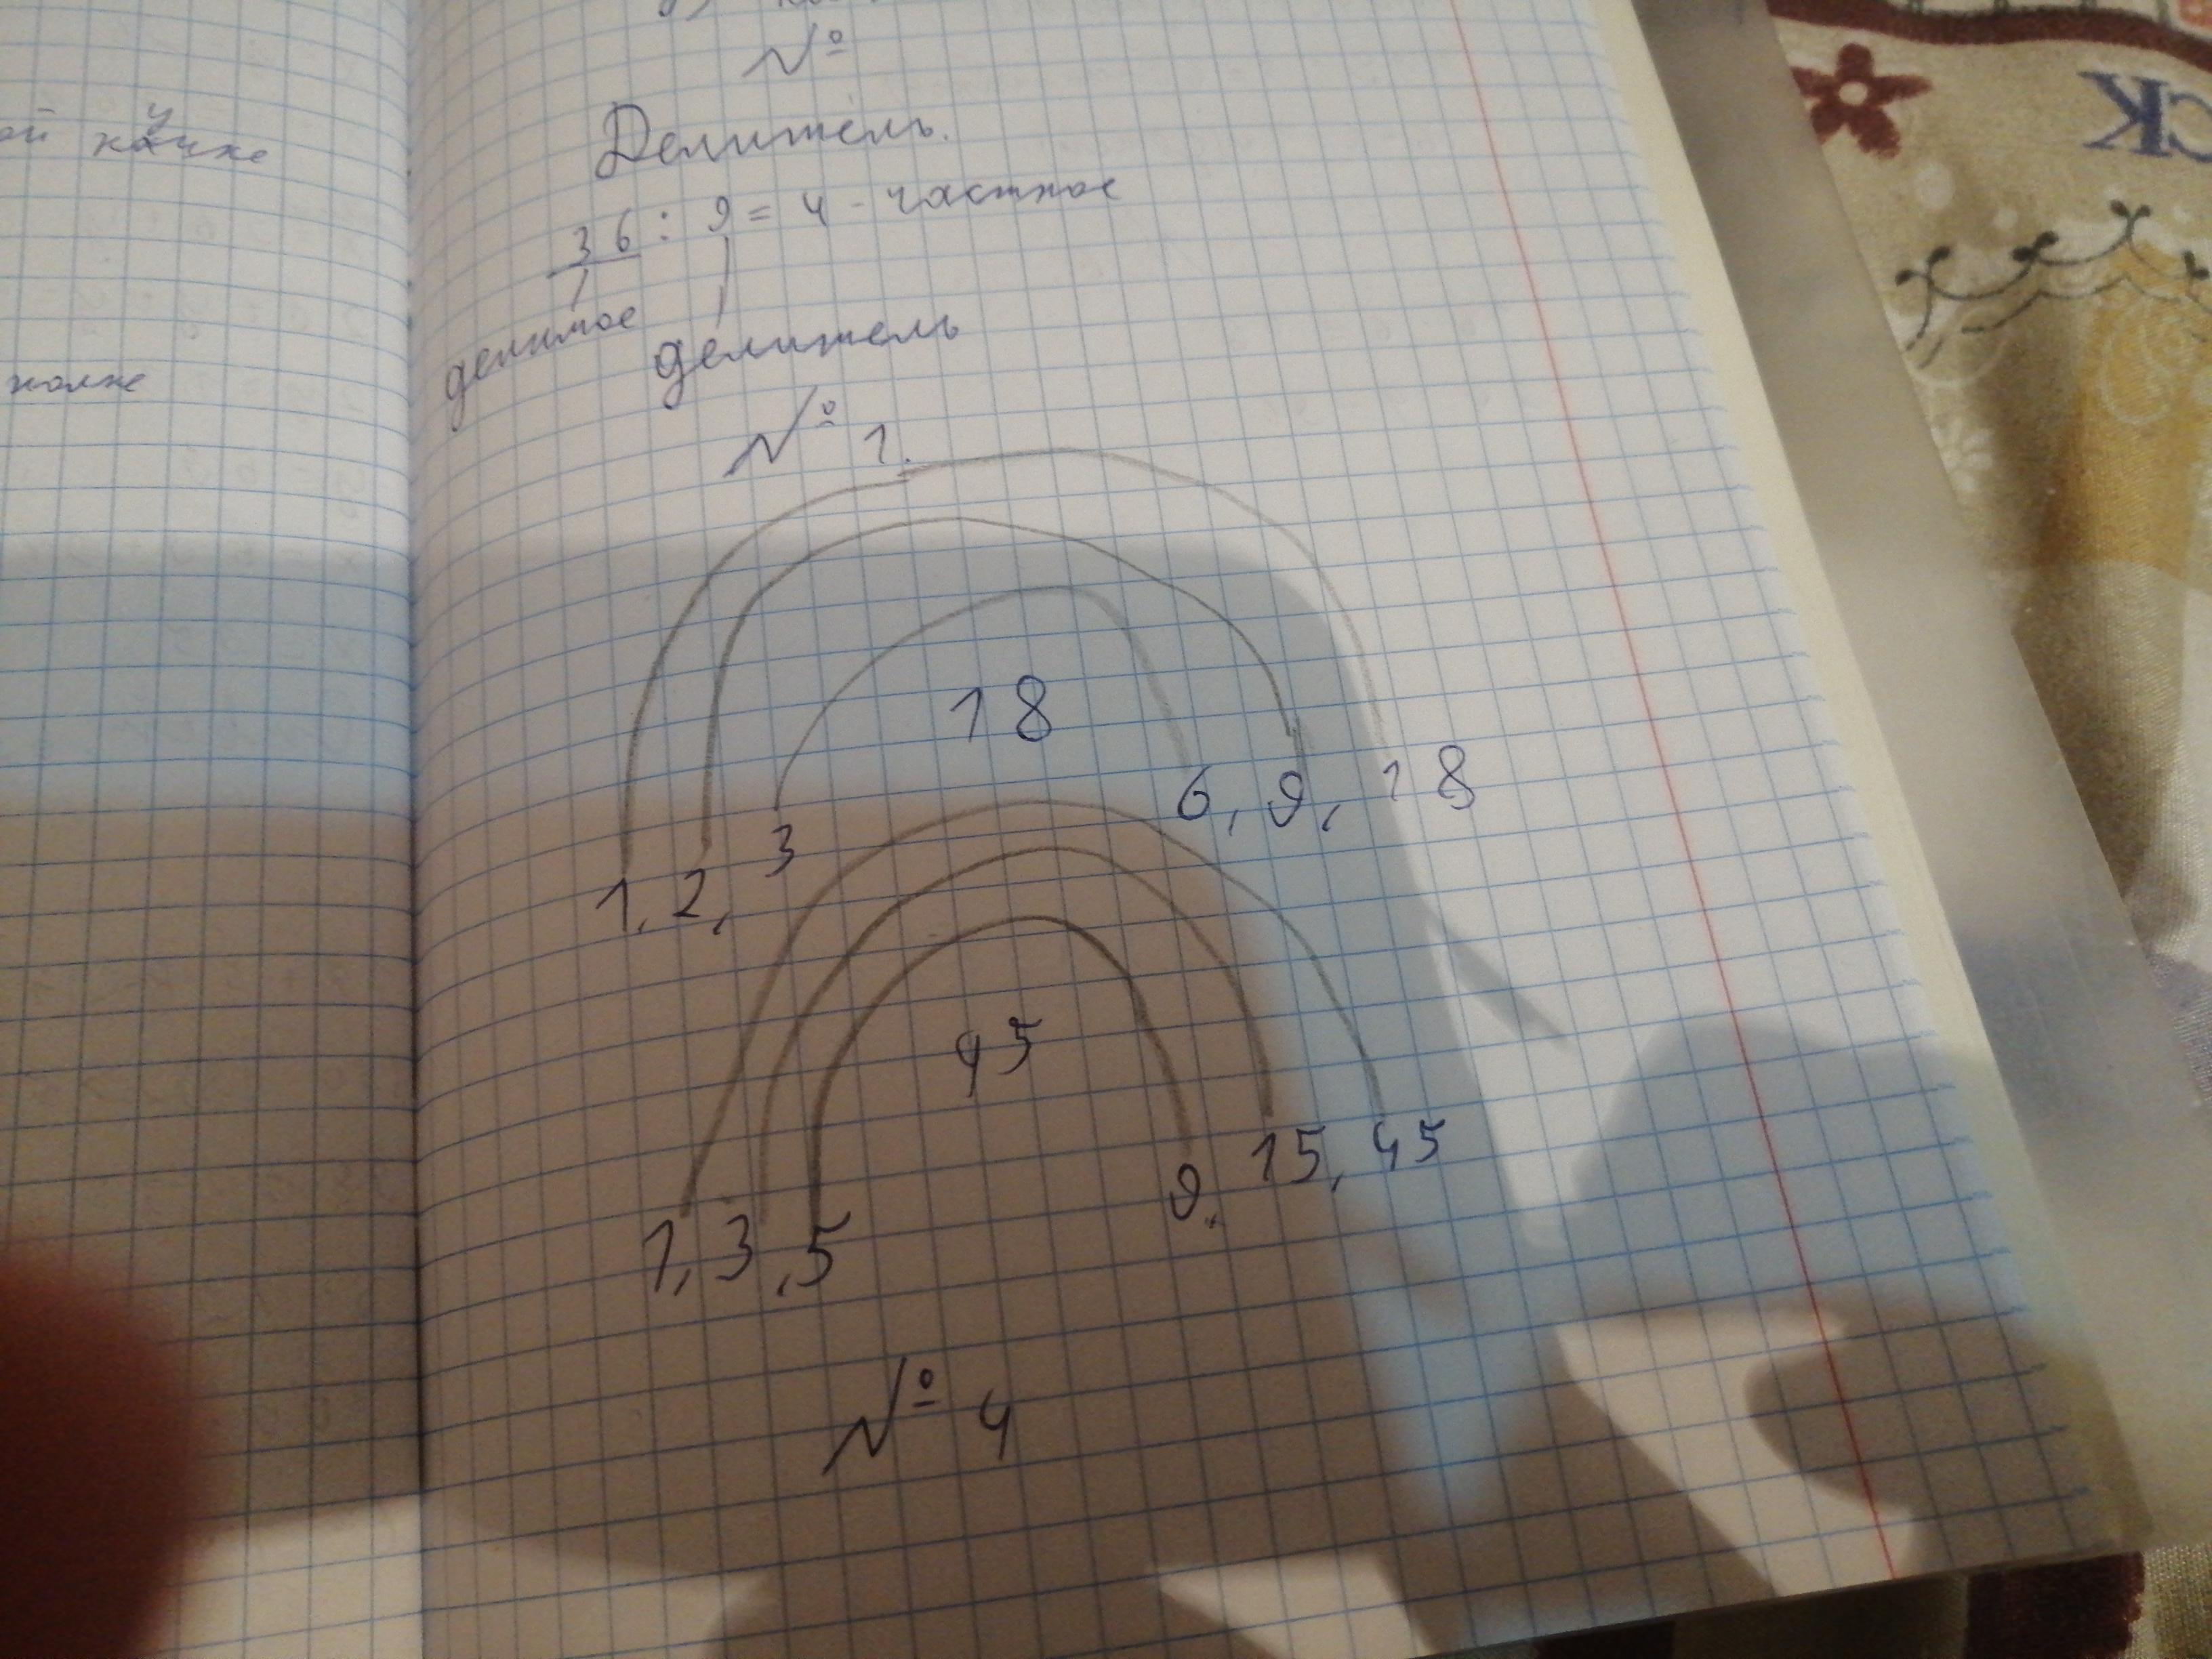 ой
полке
№
Делитель.
36 : 9 = 4 - частное
делимое
делитель
№ 1.
18
1, 2, 3
6, 9, 18
45
1, 3, 5
9, 15, 45
№ 4
СК